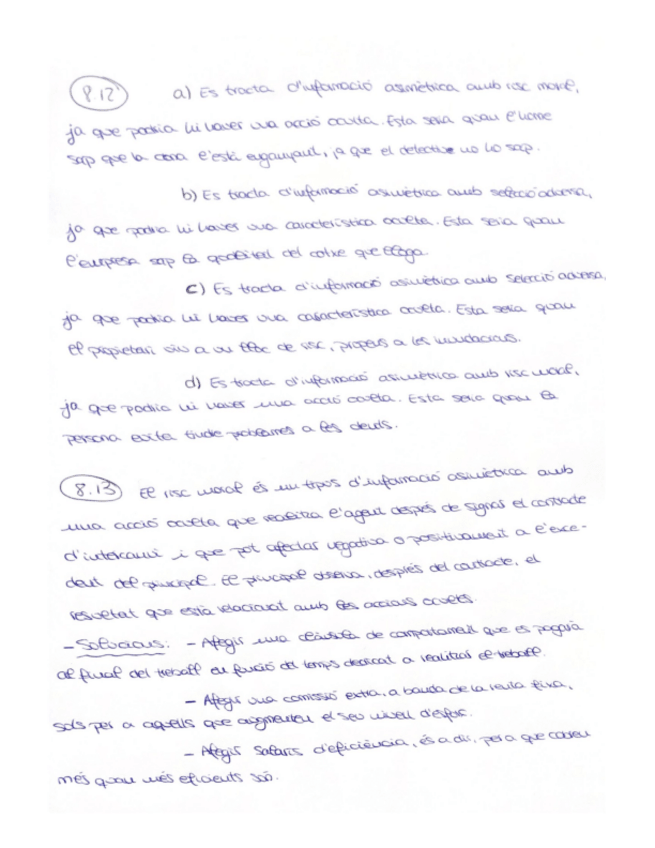 8.12 a) Es tracta d'informació asimètrica amb risc moral,
ja que podria hi haver una acció oculta. Esta seria quan l'home
sap que la dona l'està enganyant, ja que el detective no ho sap.
b) Es tracta d'informació asimètrica amb selecció adversa,
ja que podria hi haver una característica oculta. Esta seria quan
l'empresa sap la qualitat del cotxe que lloga.
c) Es tracta d'informació asimètrica amb selecció adversa,
ja que podria hi haver una característica oculta. Esta seria quan
el propietari viu a un lloc de risc, propens a les inundacions.
d) Es tracta d'informació asimètrica amb risc moral,
ja que podria hi haver una acció oculta. Esta seria quan la
persona evita tindre problemes a les dents.
8.13 El risc moral és un tipus d'informació asimètrica amb
una acció oculta que realitza l'agent després de signar el contracte
d'intercanvi i que pot afectar negativa o positivament a l'exce-
dent del principal. El principal observa, després del contracte, el
resultat que està relacionat amb les accions ocultes.
- Solucions: - Afegir una clàusula de comportament que es pagarà
al final del treball en funció del temps dedicat a realitzar el treball.
- Afegir una comissió extra, a banda de la renta fixa,
sols per a aquells que augmenten el seu nivell d'esforç.
- Afegir salaris d'eficiència, és a dir, per a que cobren
més quan més eficients són.